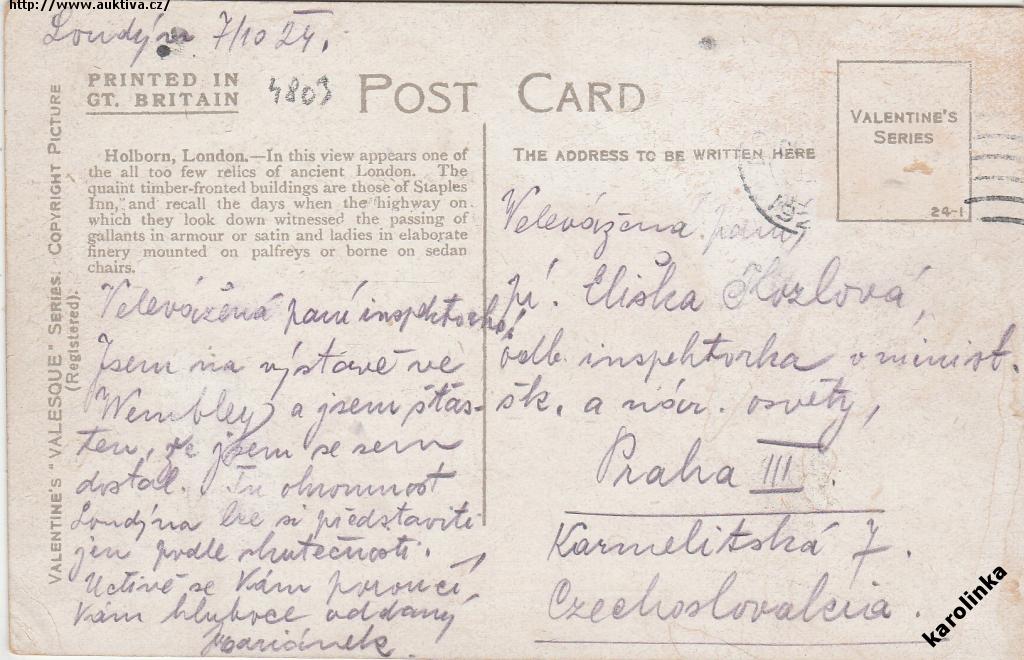 http://www.auktiva.cz/
Londýn 7/10 24.
PRINTED IN
GT. BRITAIN
4803
POST CARD
VALENTINE'S "VALESQUE" SERIES. COPYRIGHT PICTURE
(Registered).
Holborn, London.—In this view appears one of
the all too few relics of ancient London. The
quaint timber-fronted buildings are those of Staples
Inn, and recall the days when the highway on
which they look down witnessed the passing of
gallants in armour or satin and ladies in elaborate
finery mounted on palfreys or borne on sedan
chairs.
Velevážená paní inspektorko!
Jsem na výstavě ve
Wembley, a jsem šťas-
ten, že jsem se sem
dostal. Tu ohromnost
Londýna lze si představiti
jen podle skutečnosti.
Uctivě se Vám poroučí,
Vám hluboce oddaný
THE ADDRESS TO BE WRITTEN HERE
VALENTINE'S
SERIES
24-1
Velevážená paní,
pí. Eliška Kozlová,
odb. inspektorka v minist.
šk. a nár. osvěty,
Praha III.
Karmelitská 7.
Czechoslovakia.
karolinka